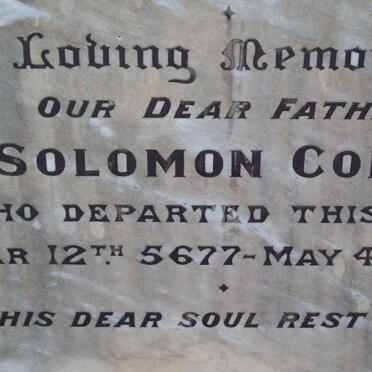 Loving Memo
OUR DEAR FATH
SOLOMON CO
HO DEPARTED THIS
AR 12TH 5677-MAY 4
HIS DEAR SOUL REST